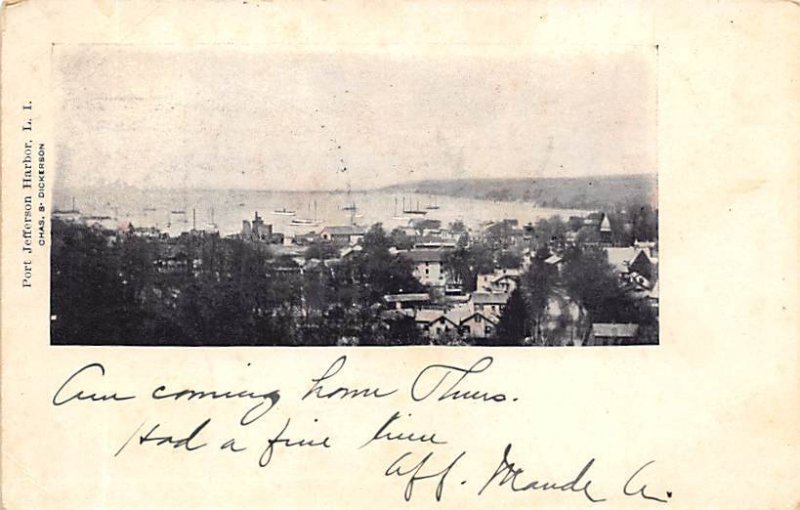 Port Jefferson Harbor, L. I.
CHAS. S. DICKERSON
Am coming home Thurs.
Had a fine time
Aff. Maude A.